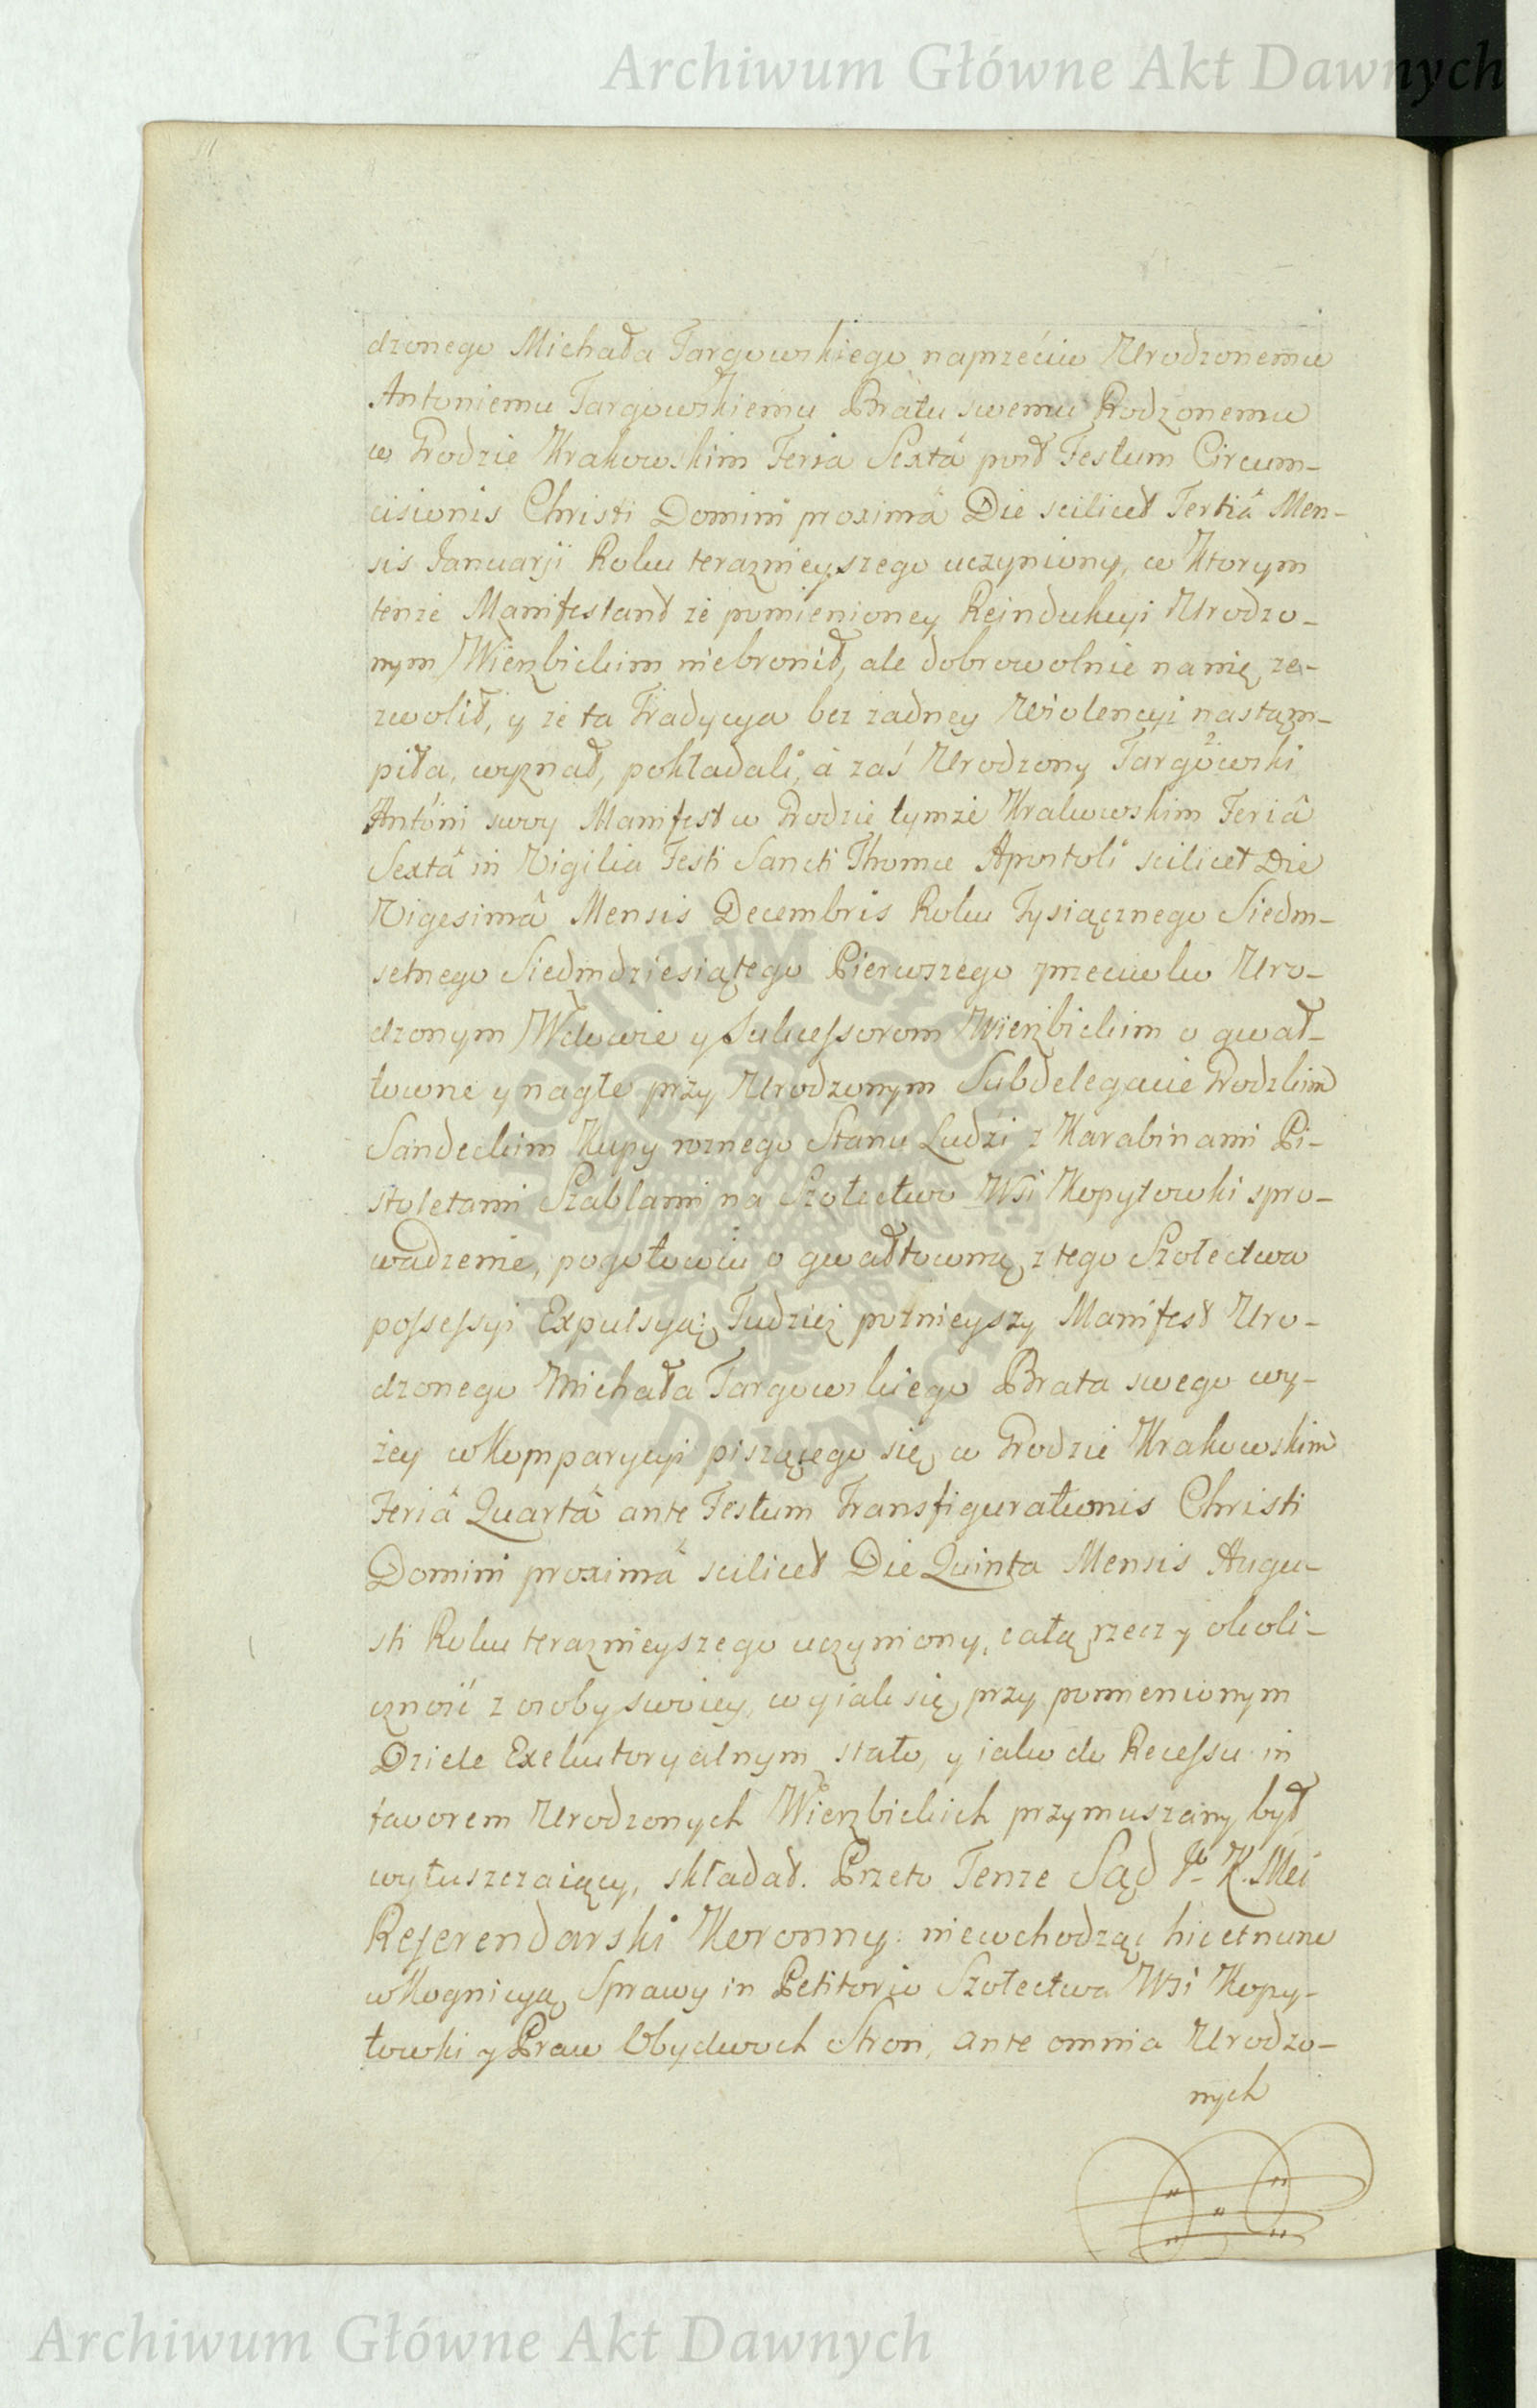 Archiwum Główne Akt Dawnych
dzonego Michała Targowskiego naprzećiw Urodzonemu
Antoniemu Targowskiemu Bratu swemu Rodzonemu
w Grodzie Krakowskim Feria Sextâ post Festum Circum-
cisionis Christi Domini proximâ Die scilicet Tertiâ Men-
sis Januarji Roku teraznieyszego uczyniony, w Ktorym
tenże Manifestant że pomienioney Reindukcyi Urodzo-
nym Wierzbickim niebronił, ale dobrowolnie na nię ze-
zwolił, y że ta Tradycya bez żadney Wiolencyi nastąm-
piła, wyznał, pokładali, à zaś Urodzony Targowski
Antóni swoy Manifest w Grodzie tymże Krakowskim Feriâ
Sextâ in Vigilia Festi Sancti Thomæ Apostoli scilicet Die
Vigesimâ Mensis Decembris Roku Tysiącznego Siedm-
setnego Siedmdziesiątego Pierwszego przeciwko Uro-
dzonym Wdowie y Sukcessorom Wierzbickim o gwał-
towne y nagłe przy Urodzonym Subdelegacie Grodzkim
Sandeckim Kupy roznego Stanu Ludzi z Karabinami Pi-
stoletami Szablami na Szołectwo Wsi Kopytowki spro-
wadzenie, pogotowiu o gwałtowną z tego Szołectwa
possessyi Expulsyą; Tudzież poźnieyszy Manifest Uro-
dzonego Michała Targowskiego Brata swego wy-
żey w Komparycyi piszącego się w Grodzie Krakowskim
Feriâ Quartâ ante Festum Transfigurationis Christi
Domini proximâ scilicet Die Quinta Mensis Augu-
sti Roku teraznieyszego uczyniony, całą rzeczy okoli-
czność z osoby swoiey, w iak się przy pomienionym
Dziele Exekutoryalnym stało, y iako do Recessu in
favorem Urodzonych Wierzbickich przymuszany był
wyłuszczaiący, składał. Przeto Tenże Sąd J. K. Mci
Referendarski Koronny: niewchodząc hic et nunc
w Kognicyą Sprawy in Petitorio Szołectwa Wsi Kopy-
towki y Praw Obydwoch Stron, ante omnia Urodzo-
nych
Archiwum Główne Akt Dawnych